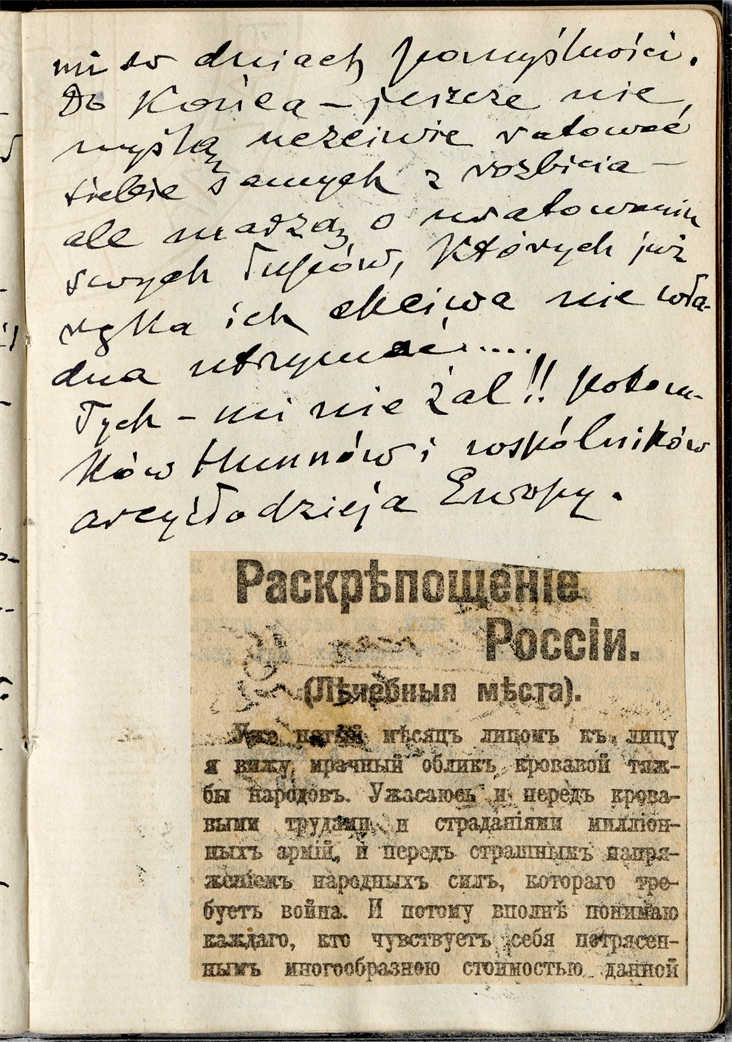 mi w dniach pomyślności.
Do Końca – jeszcze nie
myślą uczciwie ratować
siebie samych z rozbicia –
ale madzą o uratowaniu
swych łupów, których już
ręka ich chciwa nie wła-
dna utrzymać....
Tych – mi nie żal!! potom-
ków Hunnów i wspólników
arcyzłodzieja Europy.
Раскрѣпощеніе
Россіи.
(Лѣчебныя мѣста).
Уже пятый мѣсяцъ лицомъ къ лицу
я вижу мрачный обликъ кровавой тяж-
бы народовъ. Ужасаюсь и передъ крова-
выми трудами и страданіями милліон-
ныхъ армій, и передъ страшнымъ напря-
женіемъ народныхъ силъ, котораго тре-
буетъ война. И потому вполнѣ понимаю
каждаго, кто чувствуетъ себя потрясен-
нымъ многообразною стоимостью данной